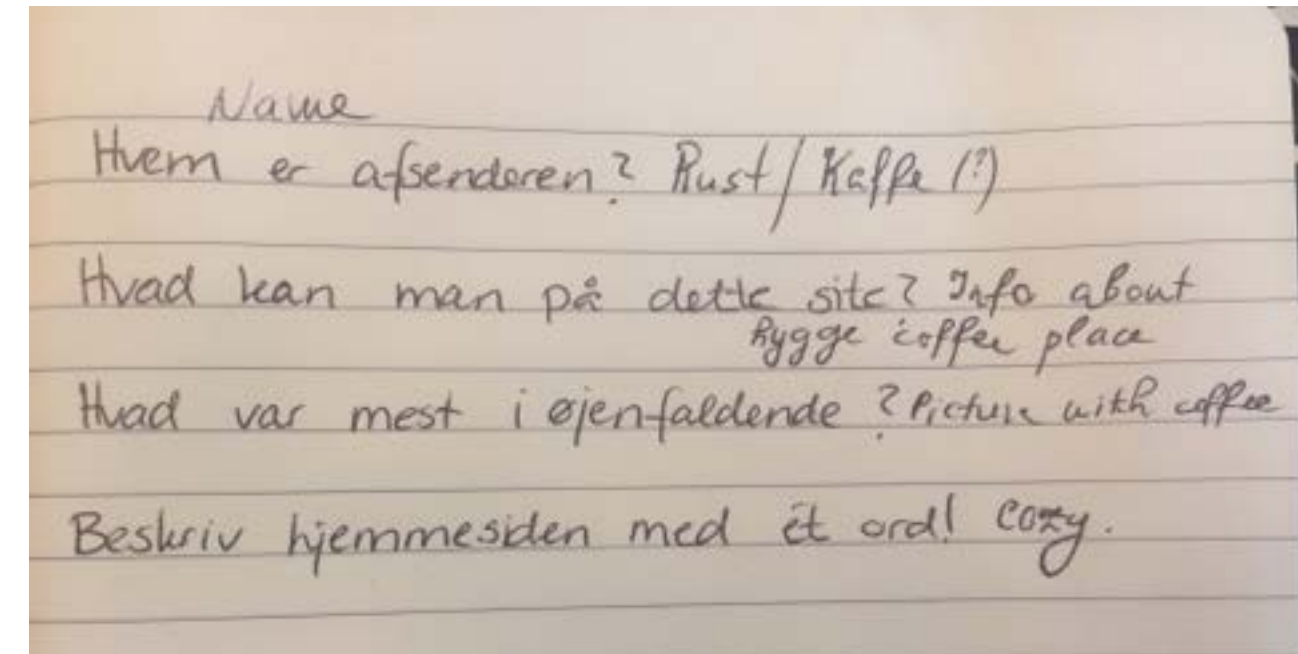 Name
Hvem er afsenderen? Rust/Kaffe (?)
Hvad kan man på dette site? Info about
hygge coffee place
Hvad var mest i øjenfaldende? Picture with coffee
Beskriv hjemmesiden med ét ord! cozy.